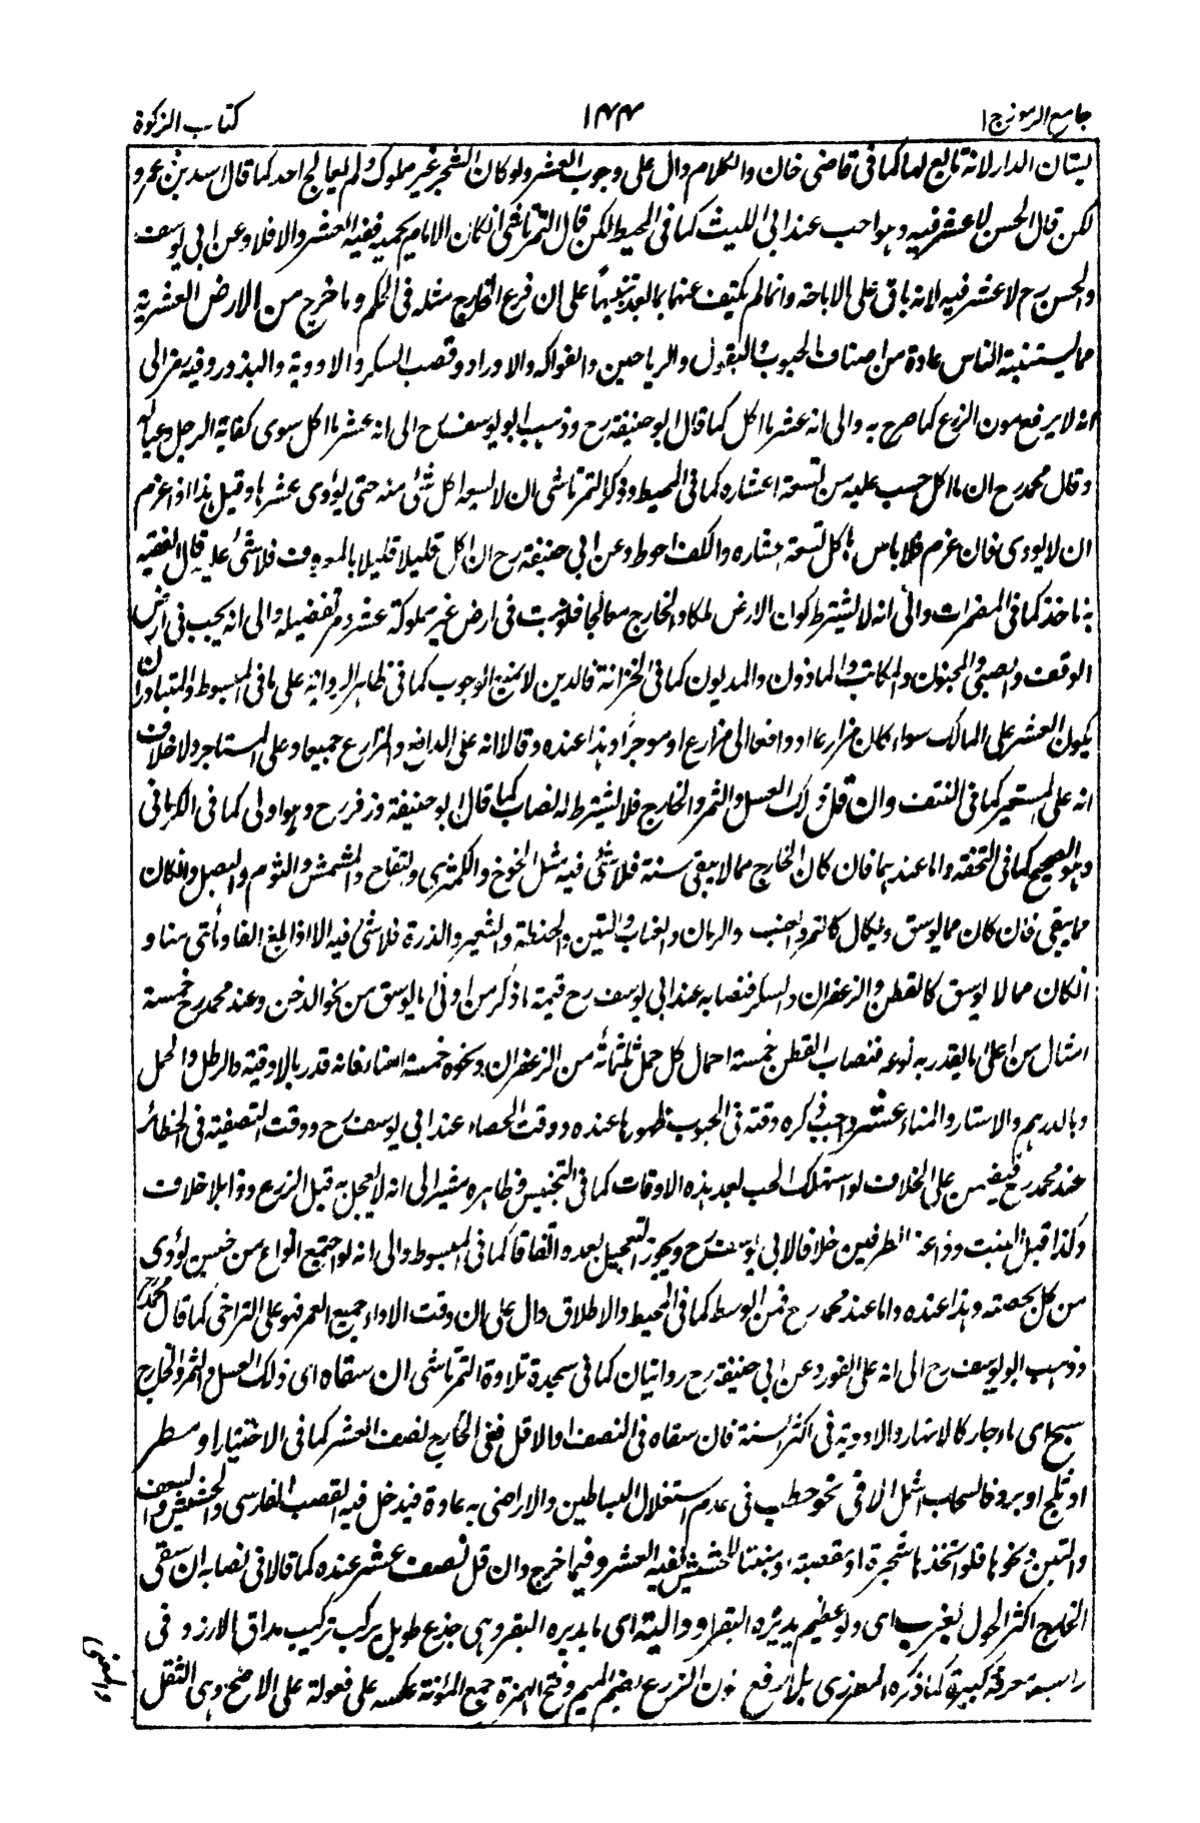 جامع الرموز ج ا
١٤٤
كتاب الزكوة
لبستان الدار لانه تابع لها كما في قاضى خان والكلام دال على وجوب العشر ولو كان الشجر غير مملوك ولم يعالج احد كما قال سعد بن عمرو
لكن قال الحسن لا عشر فيه وهو احب عند ابى الليث كما في المحيط لكن قال التمرتاشى ان كان الامام يحميه ففيه العشر والا فلا وعن ابى يوسف
والحسن رح لا عشر فيه لانه باق على الاباحة وانما لم يكتف عنها بما بعد تنبيها على ان فرع الخارج مثله في الحكم وما خرج من الارض العشرية
مما يستنبته الناس عادة من اصناف الحبوب والبقول والرياحين والفواكه والاوراد وقصب السكر والادوية والبذور وفيه رمز الى
انه لا يرفع مون الزرع كما صرح به والى انه عشر ما اكل كما قال ابو حنيفة رح وذهب ابو يوسف رح الى انه عشر ما اكل سوى كفاية الرجل وعياله
وقال محمد رح ان ما اكل حسب عليه من تسعة اعشاره كما في المحيط وذكر التمرتاشى ان لا يسعه اكل شئ منه حتى يؤدى عشرها وقيل هذا اذا عزم
ان لا يودى فان عزم فلا باس باكل تسعة اعشاره والكف احوط وعن ابى حنيفة رح ان اكل قليلا قليلا بالمعروف فلا شئ عليه قال الفقيه
به ناخذ كما في المضمرات والى انه لا يشترط كون الارض ملكا والخارج معالجا فلو نبت في ارض غير مملوكة عشر ومر تفصيله والى انه يجب في ارض
الوقف والصبى والمجنون والمكاتب والماذون والمديون كما في الخزانة فالدين لا يمنع الوجوب كما في ظاهر الرواية على ما في المبسوط والمتبادر ان
يكون العشر على المالك سواء كان مزارعا او دافعا الى مزارع او موجرا وهذا عنده وقالا انه على الدافع والمزارع جميعا وعلى المستاجر ولا خلاف
انه على المستعير كما في النتف وان قل ذلك العسل والثمر والخارج فلا يشترط له نصاب كما قال ابو حنيفة وزفر رح وهو اولى كما في الكرمانى
وهو الصحيح كما في التحفة واما عندهما فان كان الخارج مما لا يبقى سنة فلا شئ فيه مثل الخوخ والكمثرى والتفاح والمشمش والثوم والبصل وان كان
مما يبقى فان كان مما يوسق ويكال كالتمر والعنب والرمان والعناب والتين والحنطة والشعير والذرة فلا شئ فيه الا اذا بلغ الفا ومأتى منا و
ان كان مما لا يوسق كالقطن والزعفران والسكر فنصابه عند ابى يوسف رح قيمة ما ذكر من ادنى ما يوسق من نحو الدخن وعند محمد رح خمسة
امثال من اعلى ما يقدر به نوعه فنصاب القطن خمسة احمال كل حمل ثلثمائة من الزعفران ونحوه خمسة امنا فانه قدر بالاوقية والرطل والحمل
وبالدرهم والاستار والمناء عشر واجب ذكره وقته في الحبوب ظهورها عنده ووقت الحصاد عند ابى يوسف رح ووقت التصفية في الحظائر
عند محمد رح فيضمن على الخلاف لو استهلك الحب بعد هذه الاوقات كما في التجنيس وظاهره مشير الى انه لا يعجل به قبل الزرع وذا بلا خلاف
وكذا قبل النبت وذا عند الطرفين خلافا لابى يوسف رح ويجوز التعجيل بعده اتفاقا كما في المبسوط والى انه لو اجتمع انواع من جنسين يؤدى
من كل بحصته وهذا عنده واما عند محمد رح فمن الوسط كما في المحيط والاطلاق دال على ان وقت الاداء جميع العمر فهو على التراخى كما قال محمد رح
وذهب ابو يوسف رح الى انه على الفور وعن ابى حنيفة رح روايتان كما في سجدة تلاوة التمرتاشى ان سقاه اى ذلك العسل والثمر والخارج
سيح اى ماء جار كالانهار والاودية في اكثر السنة فان سقاه في النصف او الاقل ففى الخارج نصف العشر كما في الاختيار او مطر
او ثلج او برد فالسحاب اشمل الا في نحو حطب في عدم استغلال البساطين والاراضى به عادة فيدخل فيه القصب الفارسى والحشيش والسعف
والتبن ونحوها فلو اتخذها شجرة او مقصبة او منبتا للحشيش ففيه العشر وفيما خرج وان قل نصف عشر عنده كما قالا في نصابه ان سقى
الخارج اكثر الحول بغرب اى دلو عظيم يديره البقر او دالية اى ما يديره البقر وهى جذع طويل يركب تركيب مداق الارز وفى
راسه مغرفة كبيرة كما ذكره المطرزى بلا رفع مون الزرع بضم الميم وفتح الهمزة جمع المؤنة عكسه على فعولة على الاصح وهى الثقل